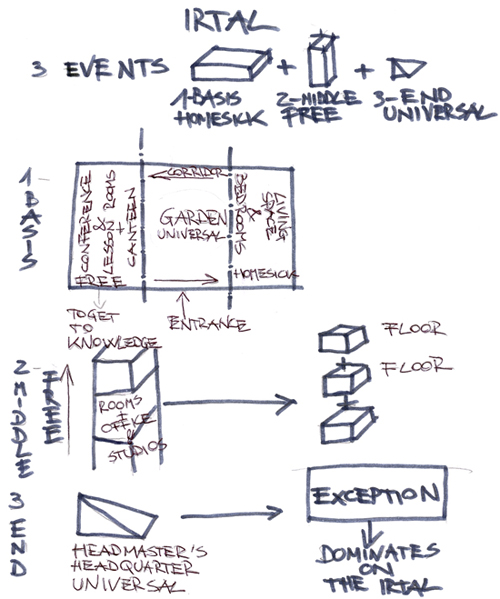 IRTAL
3 EVENTS
+
+
1-BASIS
HOMESICK
2-MIDDLE
FREE
3-END
UNIVERSAL
1 BASIS
CONFERENCE
&
LESSON ROOMS
+
CANTEEN
FREE
CORRIDOR
GARDEN
UNIVERSAL
BEDROOMS
&
LIVING
SPACE
HOMESICK
TO GET
TO
KNOWLEDGE
ENTRANCE
2 MIDDLE
FREE
ROOMS
+
OFFICE
&
STUDIOS
FLOOR
+
FLOOR
+
3 END
HEADMASTER'S
HEADQUARTER
UNIVERSAL
EXCEPTION
DOMINATES
ON
THE IRTAL